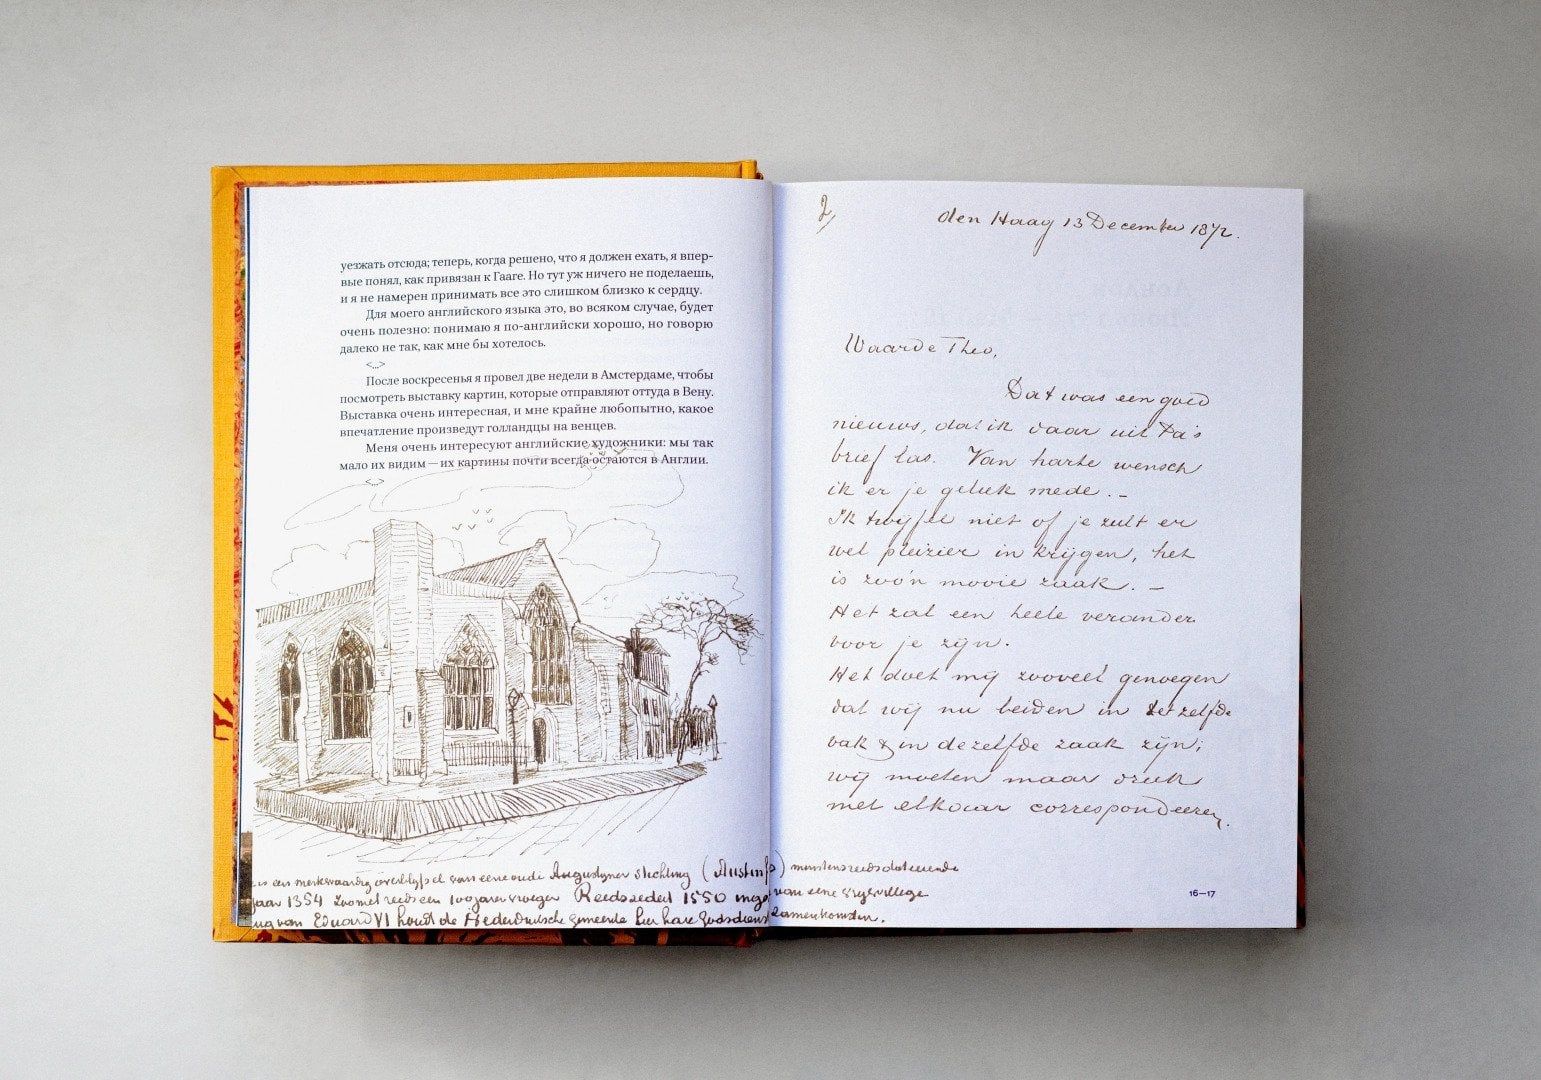 уезжать отсюда; теперь, когда решено, что я должен ехать, я впер-
вые понял, как привязан к Гааге. Но тут уж ничего не поделаешь,
и я не намерен принимать все это слишком близко к сердцу.
Для моего английского языка это, во всяком случае, будет
очень полезно: понимаю я по-английски хорошо, но говорю
далеко не так, как мне бы хотелось.
<...>
После воскресенья я провел две недели в Амстердаме, чтобы
посмотреть выставку картин, которые отправляют оттуда в Вену.
Выставка очень интересная, и мне крайне любопытно, какое
впечатление произведут голландцы на венцев.
Меня очень интересуют английские художники: мы так
мало их видим — их картины почти всегда остаются в Англии.
<...>
is een merkwaardig overblyfsel van eene oude Augustyner stichting (Austin
jaar 1354 zoo niet reeds een 100 jaren vroeger Reeds sedert 1550
van Eduard VI houdt de Nederduitsche gemeente hier hare godsdienst
van eene
zamenkomsten.
2,
den Haag 13 December 1872.
Waarde Theo,
Dat was een goed
nieuws, dat ik daar uit Pa's
brief las. Van harte wensch
ik er je geluk mede. —
Ik twijfel niet of je zult er
wel pleizier in krijgen, het
is zoo'n mooie zaak. —
Het zal een heele verander
voor je zijn.
Het doet mij zooveel genoegen
dat wij nu beiden in dezelfde
vak & in dezelfde zaak zijn;
wij moeten maar druk
met elkaar correspondeeren.
16—17